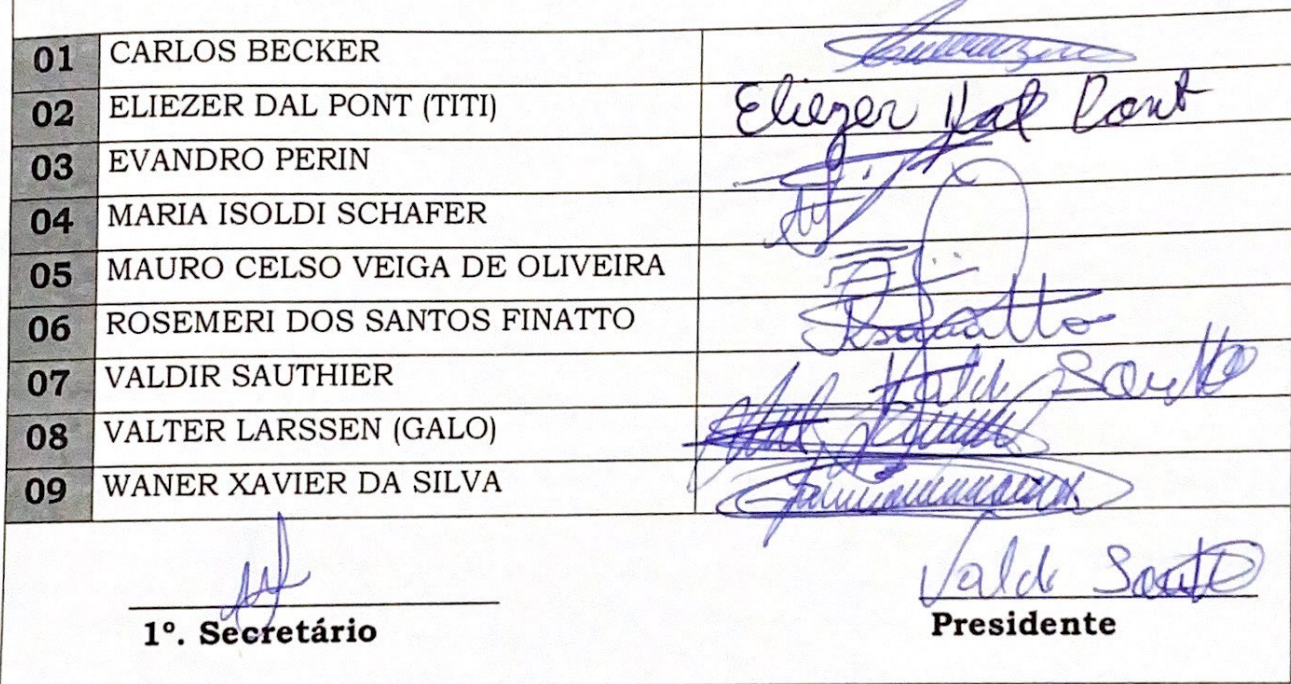 01 CARLOS BECKER
02 ELIEZER DAL PONT (TITI) Eliezer Dal Pont
03 EVANDRO PERIN
04 MARIA ISOLDI SCHAFER
05 MAURO CELSO VEIGA DE OLIVEIRA
06 ROSEMERI DOS SANTOS FINATTO
07 VALDIR SAUTHIER
08 VALTER LARSSEN (GALO)
09 WANER XAVIER DA SILVA
1º. Secretário Presidente